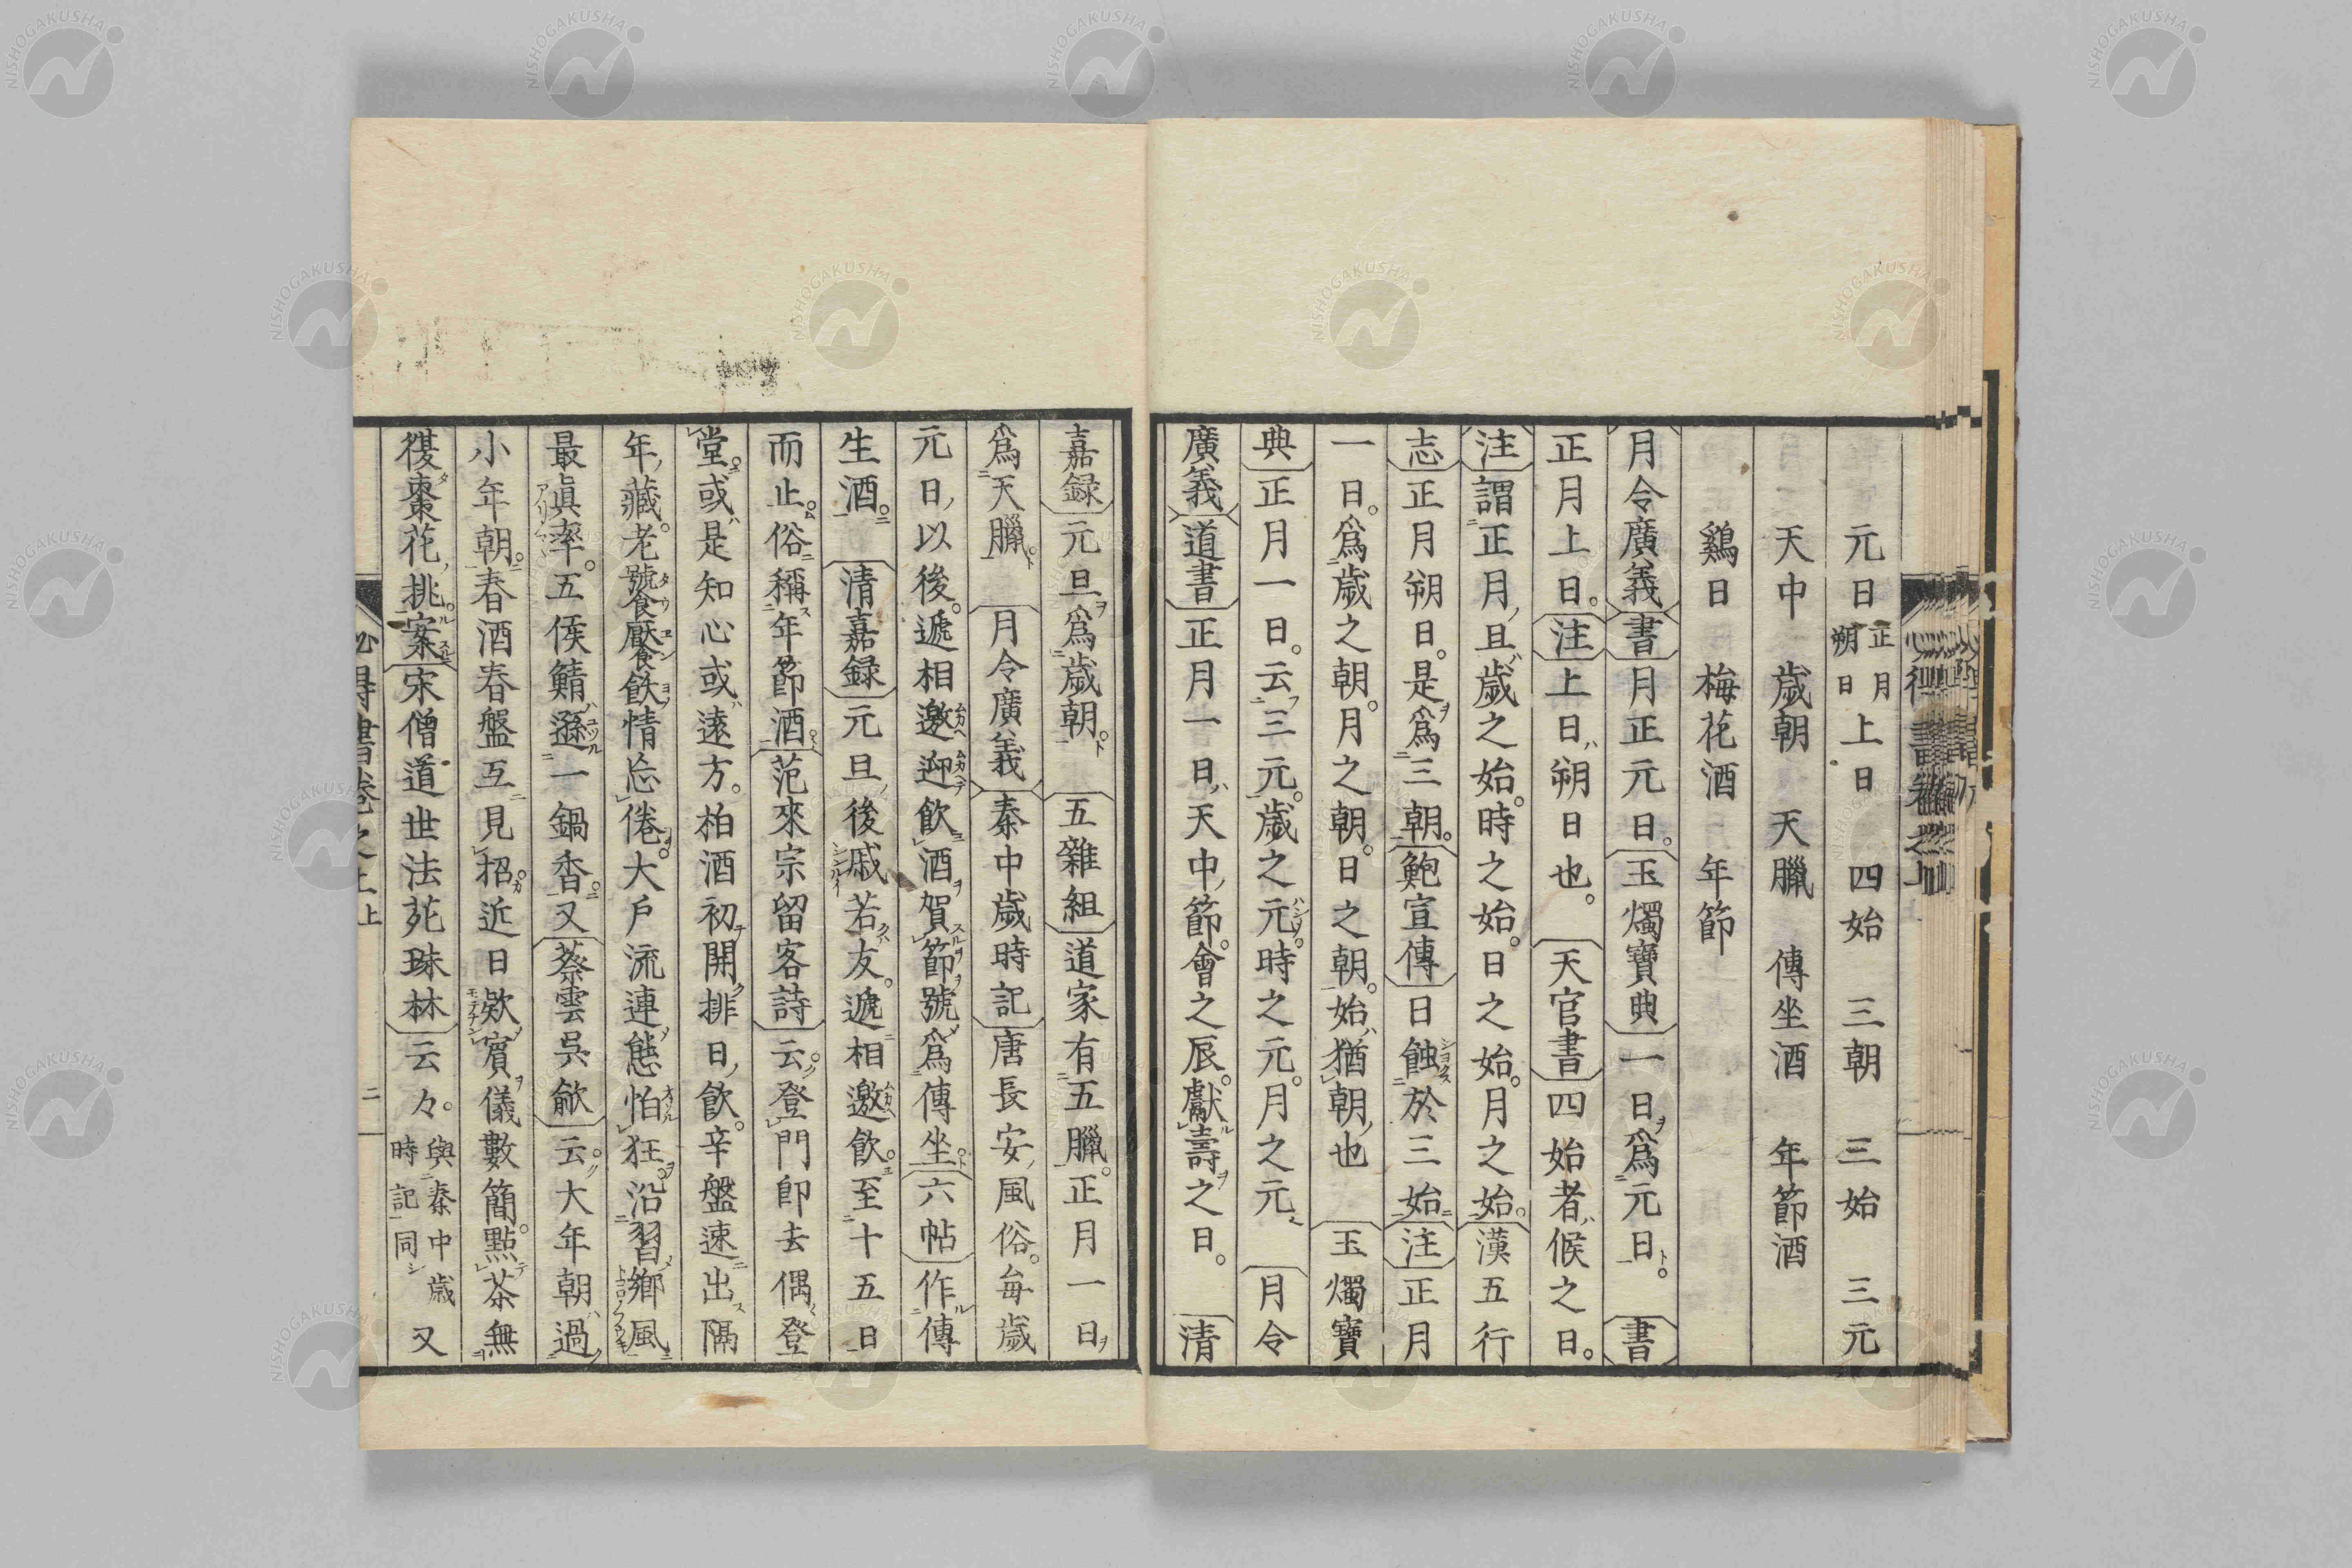 元日正月朔日上日　四始　三朝　三始　三元
天中　歳朝　天臘　傳坐酒　年節酒
鷄日　梅花酒　年節
月令廣義書月正元日。玉燭寶典一日ヲ爲元日ト。書
正月上日。注上日ハ朔日也。天官書四始者ハ候之日。
注謂正月ノ旦ハ歳之始。時之始。日之始。月之始。漢五行
志正月朔日。是ヲ爲三朝。鮑宣傳日蝕於三始。注正月
一日。爲歳之朝。月之朝。日之朝。始ハ猶朝ノ也　玉燭寶
典正月一日。云三元。歳之元。時之元。月之元　月令
廣義道書正月一日ハ天中ノ節。會之辰。獻壽ヲ之日。　清
嘉録元旦ヲ爲歳朝ト。　五雜組道家有五臘。正月一日ヲ
爲天臘ト。　月令廣義秦中歳時記唐長安ノ風俗。毎歳
元日ノ以後。遞相邀迎飲酒ヲ賀節ヲ號爲傳坐ト。六帖作傳
生酒。　清嘉録元旦ノ後戚若友。遞相邀飲。至十五日
而止。俗稱年節酒。范來宗留客詩云。登門即去偶登
堂。或ハ是知心或ハ遠方。柏酒初開排日ノ飲。辛盤速出隔
年ノ藏。老饕饜飫情忘倦。大戶流連態怕狂沿習鄉風
最眞率。五侯鯖ハ遜一鍋香。又蔡雲吳歈云。大年朝ハ過
小年朝。春酒春盤互見招。近日欵賓ヲ儀數簡。點茶無
復棗花ノ挑。案宋僧道世法苑珠林云々。與秦中歳時記同シ又
NISHOGAKUSHA